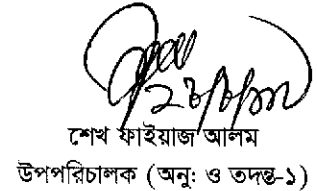 শেখ ফাইয়াজ আলম
উপপরিচালক (অনু: ও তদন্ত-১)